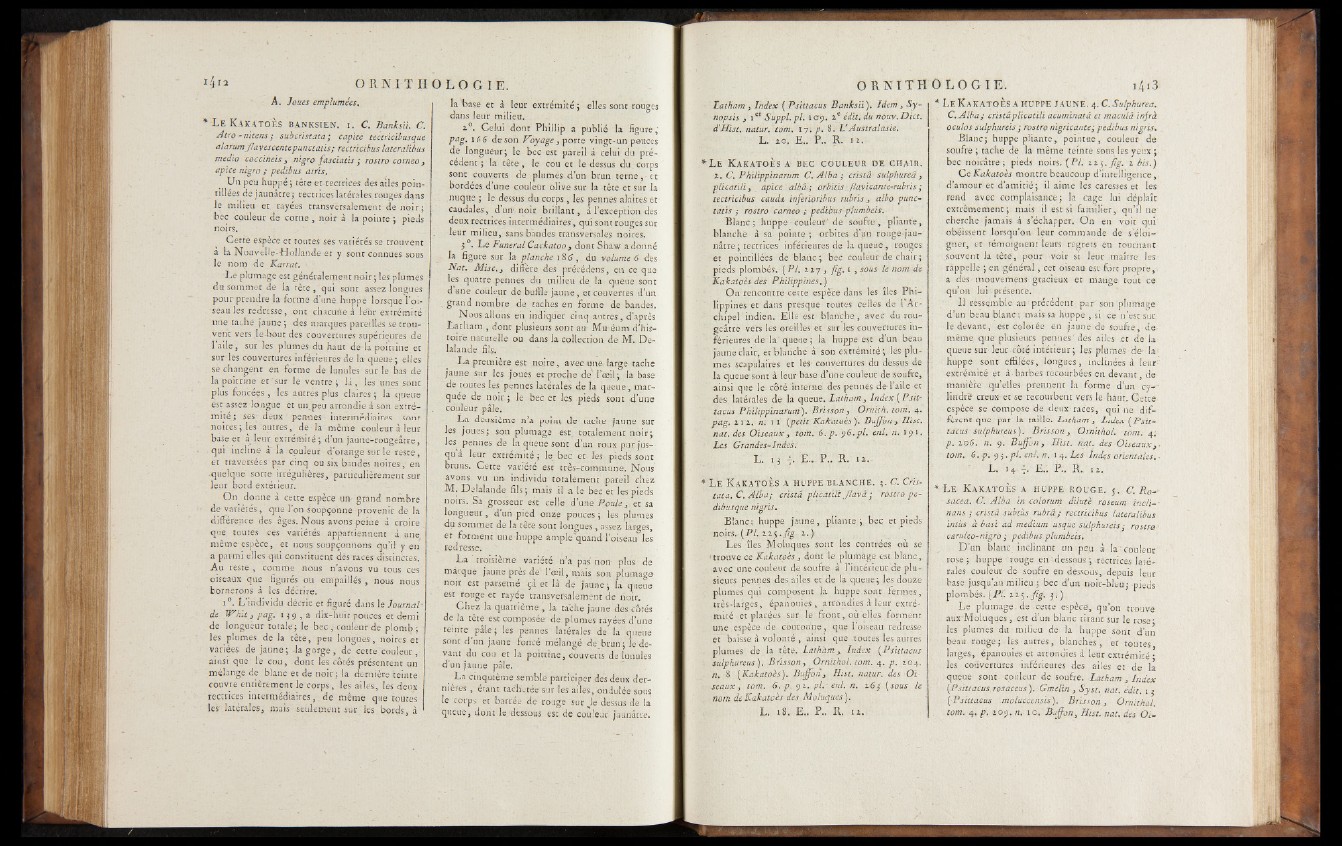 1412 ORNITHOLOGIE.
A. Joues emplumées.
* LE KAKATOÈS BANKSIEN. 1. C. Banksii. C.
Atro-nitens; subcristata; capite tectricibusque
alarum flavescente punctatis; rectricibus lateralibus
medio coccineis, nigro fasciatis; rostro corneo,
apice nigro; pedibus atris.
Un peu huppé; tête et tectrices des ailes poin-
tillées de jaunâtre; rectrices latérales rouges dans
le milieu et rayées transversalement de noir;
bec couleur de corne, noir à la pointe; pieds
noirs.
Cette espèce et toutes ses variétés se trouvent
à la Nouvelle-Hollande et y sont connues sous
le nom de Karrat.
Le plumage est généralement noir; les plumes
du sommet de la tête, qui sont assez longues
pour prendre la forme d'une huppe lorsque l'oi-
seau les redresse, ont chacune à leur extrémité
une tache jaune; des marques pareilles se trou-
vent vers le bout des couvertures supérieures de
l'aile, sur les plumes du haut de la poitrine et
sur les couvertures inférieures de la queue; elles
se changent en forme de lunules sur le bas de
la poitrine et sur le ventre; là, les unes sont
plus foncées, les autres plus claires; la queue
est assez longue et un peu arrondie à son extré-
mité; ses deux pennes intermédiaires sont
noires; les autres, de la même couleur à leur
base et à leur extrémité; d'un jaune-rougeâtre,
qui incline à la couleur d'orange sur le reste,
et traversées par cinq ou six bandes noires, en
quelque sorte irrégulières, particulièrement sur
leur bord extérieur.
On donne à cette espèce un grand nombre
de variétés, que l'on soupçonne provenir de la
différence des âges. Nous avons peine à croire
que toutes ces variétés appartiennent à une
même espèce, et nous soupçonnons qu'il y en
a parmi elles qui constituent des races distinctes.
Au reste, comme nous n'avons vu tous ces
oiseaux que figurés ou empaillés, nous nous
bornerons à les décrire.
1°. L'individu décrit et figuré dans le Journal
de Whit, pag. 139, a dix-huit pouces et demi
de longueur totale; le bec, couleur de plomb;
les plumes de la tête, peu longues, noires et
variées de jaune; la gorge, de cette couleur,
ainsi que le cou, dont les côtés présentent un
mélange de blanc et de noir; la dernière teinte
couvre entièrement le corps, les ailes, les deux
rectrices intermédiaires, de même que toutes
les latérales, mais seulement sur les bords, à
la base et à leur extrémité; elles sont rouges
dans leur milieu.
2°. Celui dont Phillip a publié la figure,
pag. 166 de son Voyage, porte vingt-un pouces
de longueur; le bec est pareil à celui du pré-
cédent; la tête, le cou et le dessus du corps
sont couverts de plumes d'un brun terne, et
bordées d'une couleur olive sur la tête et sur la
nuque; le dessus du corps, les pennes alaires et
caudales, d'un noir brillant, à l'exception des
deux rectrices intermédiaires, qui sont rouges sur
leur milieu, sans bandes transversales noires.
3°. Le Funeral Cackatoo, dont Shaw a donné
la figure sur la planche 186, du volume 6 des
Nat. Misc., diffère des précédens, en ce que
les quatre pennes du milieu de la queue sont
d'une couleur de buffle jaune, et couvertes d'un
grand nombre de taches en forme de bandes.
Nous allons en indiquer cinq autres, d'après
Latham, dont plusieurs sont au Muséum d'his-
toire naturelle ou dans la collection de M. De-
lalande fils.
La première est noire, avec une large tache
jaune sur les joues et proche de l'œil; la base
de toutes les pennes latérales de la queue, mar-
quée de noir; le bec et les pieds sont d'une
couleur pâle.
La deuxième n'a point de tache jaune sur
les joues; son plumage est totalement noir;
les pennes de la queue sont d'un roux pur jus-
qu'à leur extrémité; le bec et les pieds sont
bruns. Cette variété est très-commune. Nous
avons vu un individu totalement pareil chez
M. Delalande fils; mais il a le bec et les pieds
noirs. Sa grosseur est celle d'une Poule, et sa
longueur, d'un pied onze pouces; les plumes
du sommet de la tête sont longues, assez larges,
et forment une huppe ample quand l'oiseau les
redresse.
La troisième variété n'a pas non plus de
marque jaune près de l'œil, mais son plumage
noir est parsemé çà et là de jaune; la queue
est rouge et rayée transversalement de noir.
Chez la quatrième, la tache jaune des côtés
de la tête est composée de plumes rayées d'une
teinte pâle; les pennes latérales de la queue
sont d'un jaune foncé mélangé de brun; le de-
vant du cou et la poitrine, couverts de lunules
d'un jaune pâle.
La cinquième semble participer des deux der-
nières, étant tachetée sur les ailes, ondulée sous
le corps et barrée de rouge sur le dessus de la
queue, dont le dessous est de couleur jaunâtre.
ORNITHOLOGIE. 1413
Latham, Index (Psittacus Banksii). Idem, Sy-
nopsis, 1er Suppl. pl. 109. 2e édit. du nouv. Dict.
d'Hist. natur. tom. 17. p. 8. L'Australasie.
L. 20. E.. P.. R. 12.
* LE KAKATOÈS A BEC COULEUR DE CHAIR.
2. C. Philippinarum C. Alba; cristâ sulphureâ,
plicatili, apice albâ; orbitis flavicante-rubris;
tectricibus caudæ inferioribus rubris, albo punc-
tatis; rostro carneo; pedibus plumbeis.
Blanc; huppe couleur de soufre, pliante,
blanche à sa pointe; orbites d'un rouge-jau-
nâtre; tectrices inférieures de la queue, rouges
et pointillées de blanc; bec couleur de chair;
pieds plombés. (Pl. 227, fig. 1, sous le nom de
Kakatoès des Philippines.)
On rencontre cette espèce dans les îles Phi-
lippines et dans presque toutes celles de l'Ar-
chipel indien. Elle est blanche, avec du rou-
geâtre vers les oreilles et sur les couvertures in-
férieures de la queue; la huppe est d'un beau
jaune clair, et blanche à son extrémité; les plu-
mes scapulaires et les couvertures du dessus de
la queue sont à leur base d'une couleur de soufre,
ainsi que le côté interne des pennes de l'aile et
des latérales de la queue. Latham, Index (Psit-
tacus Philippinarum). Brisson, Ornith. tom. 4.
pag. 212. n. 11 (petit Kakatoès). Buffon, Hist.
nat. des Oiseaux, tom. 6. p. 96. pl. enl. n. 191.
Les Grandes-Indes.
L. 13 ½. E.. P.. R. 12.
* LE KAKATOÈS A HUPPE BLANCHE. 3. C. Cris-
tata. C. Alba; cristâ plicatili flavâ; rostro pe-
dibusque nigris.
Blanc; huppe jaune, pliante; bec et pieds
noirs. (Pl. 225. fig. 2.)
Les îles Moluques sont les contrées où se
trouve ce Kakatoès, dont le plumage est blanc,
avec une couleur de soufre à l'intérieur de plu-
sieurs pennes des ailes et de la queue; les douze
plumes qui composent la huppe sont fermes,
très-larges, épanouies, arrondies à leur extré-
mité et placées sur le front, où elles forment
une espèce de couronne, que l'oiseau redresse
et baisse à volonté, ainsi que toutes les autres
plumes de la tête. Latham, Index (Psittacus
sulphureus). Brisson, Ornithol. tom. 4. p. 204.
n. 8 (Kakatoès). Buffon, Hist. natur. des Oi-
seaux, tom. 6. p. 92. pl. enl. n. 263 (sous le
nom de Kakatoès des Moluques).
L. 18. E.. P.. R. 12.
* LE KAKATOÈS A HUPPE JAUNE. 4. C. Sulphurea.
C. Alba; cristâ plicatili acuminatâ et maculâ infrà
oculos sulphureis; rostro nigricante; pedibus nigris.
Blanc; huppe pliante, pointue, couleur de
soufre; tache de la même teinte sous les yeux;
bec noirâtre; pieds noirs. (Pl. 225. fig. 2 bis.)
Ce Kakatoès montre beaucoup d'intelligence,
d'amour et d'amitié; il aime les caresses et les
rend avec complaisance; la cage lui déplaît
extrêmement; mais il est si familier, qu'il ne
cherche jamais à s'échapper. On en voit qui
obéissent lorsqu'on leur commande de s'éloi-
gner, et témoignent leurs regrets en tournant
souvent la tête, pour voir si leur maître les
rappelle; en général, cet oiseau est fort propre,
a des mouvemens gracieux et mange tout ce
qu'on lui présente.
Il ressemble au précédent par son plumage
d'un beau blanc; mais sa huppe, si ce n'est sur
le devant, est colorée en jaune de soufre, de
même que plusieurs pennes des ailes et de la
queue sur leur côté intérieur; les plumes de la
huppe sont effilées, longues, inclinées à leur
extrémité et à barbes recourbées en devant, de
manière qu'elles prennent la forme d'un cy-
lindre creux et se recourbent vers le haut. Cette
espèce se compose de deux races, qui ne dif-
fèrent que par la taille. Latham, Index (Psit-
tacus sulphureus). Brisson, Ornithol. tom. 4.
p. 206. n. 9. Buffon, Hist. nat. des Oiseaux,
tom. 6. p. 93. pl. enl. n. 14. Les Indes orientales.
L. 14 ½. E.. P.. R. 12.
* LE KAKATOÈS A HUPPE ROUGE. 5. C. Ro-
sacea. C. Alba in colorum dilutè roseum incli-
nans; cristâ subtùs rubrâ; rectricibus lateralibus
intùs à basi ad medium usque sulphureis; rostro
cæruleo-nigro; pedibus plumbeis.
D'un blanc inclinant un peu à la couleur
rose; huppe rouge en dessous; rectrices laté-
rales couleur de soufre en dessous, depuis leur
base jusqu'au milieu; bec d'un noir-bleu; pieds
plombés. (Pl. 225. fig. 3.)
Le plumage de cette espèce, qu'on trouve
aux Moluques, est d'un blanc tirant sur le rose;
les plumes du milieu de la huppe sont d'un
beau rouge; les autres, blanches, et toutes,
larges, épanouies et arrondies à leur extrémité;
les couvertures inférieures des ailes et de la
queue sont couleur de soufre. Latham, Index
(Psittacus rosaceus). Gmelin, Syst. nat. édit. 13
(Psittacus moluccensis). Brisson, Ornithol.
tom. 4. p. 209. n. 10. Buffon, Hist. nat. des Oi-